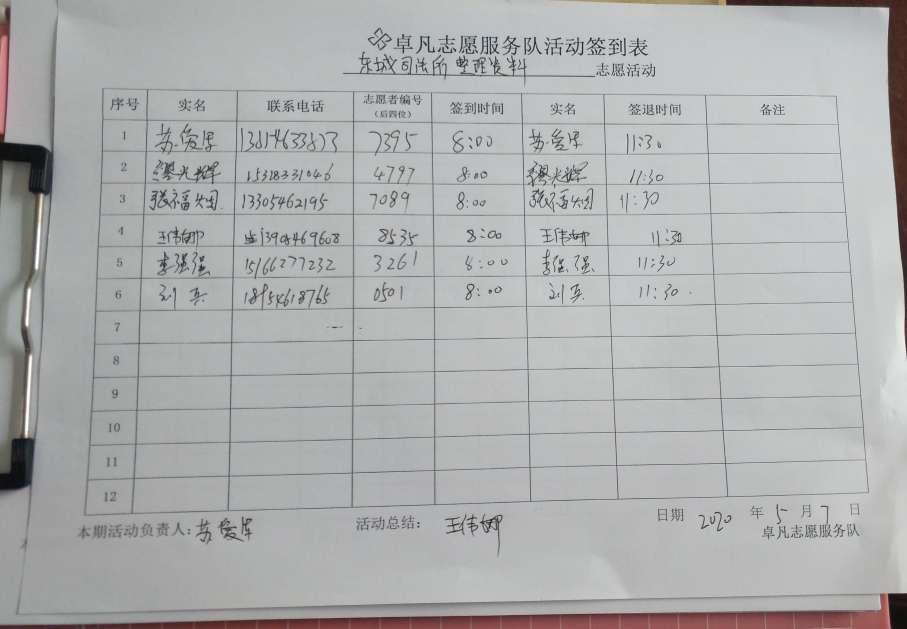 卓凡志愿服务队活动签到表
东城司法所整理资料 志愿活动
序号 实名 联系电话 志愿者编号（后四位） 签到时间 实名 签退时间 备注
1 苏爱军 7395 8:00 苏爱军 11:30
2 缪光辉 15318331046 4797 8:00 缪光辉 11:30
3 张福田 13305462195 7089 8:00 张福田 11:30
4 王伟娜 13905469608 8535 8:00 王伟娜 11:30
5 李强强 15166277232 3261 8:00 李强强 11:30
6 刘真 18954618765 0501 8:00 刘真 11:30
7
8
9
10
11
12
本期活动负责人：苏爱军 活动总结：王伟娜 日期 2020 年 5 月 7 日
卓凡志愿服务队